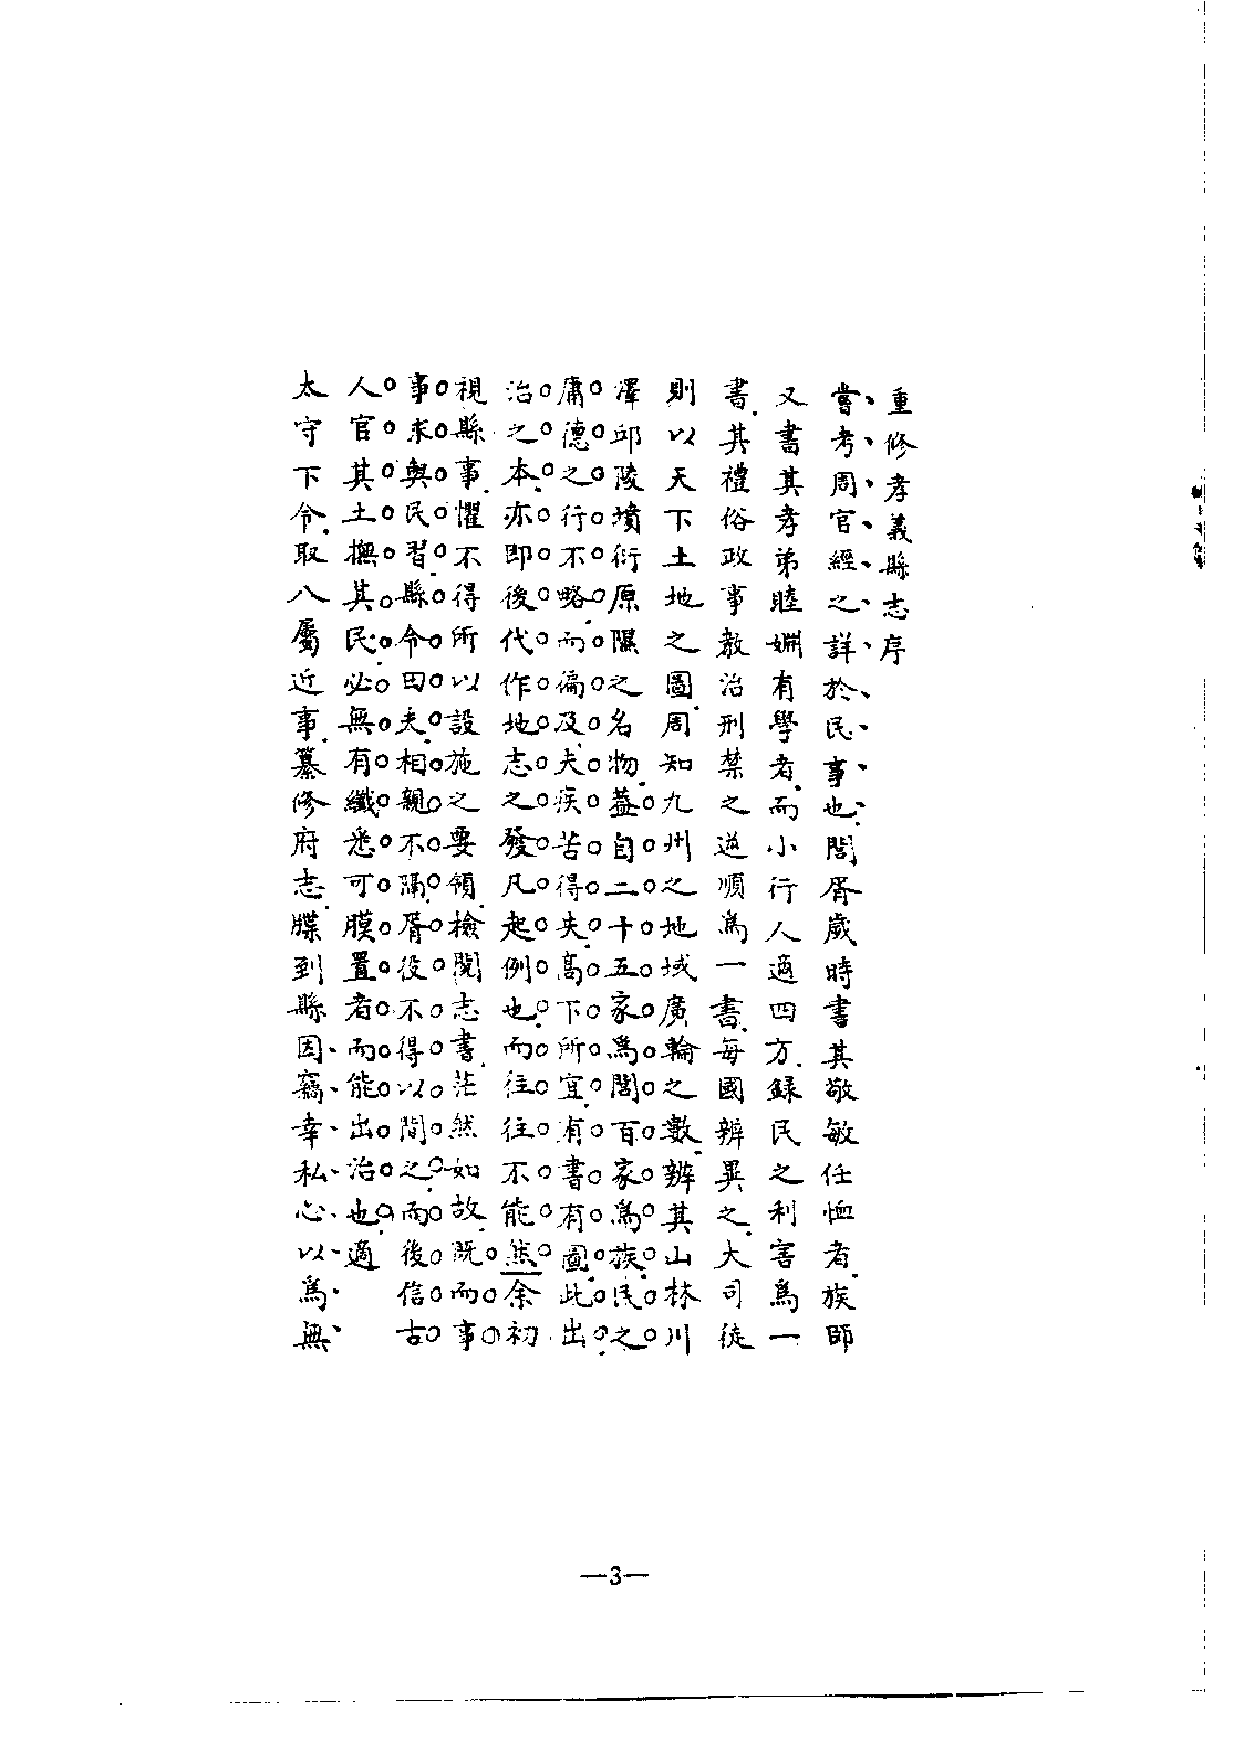 重修孝義縣志序
嘗考周官經之詳於民事也閭胥歲時書其敬敏任恤者族師
又書其孝弟睦婣有學者而小行人適四方錄民之利害爲一
書其禮俗政事教治刑禁之逆順爲一書每國辨異之大司徒
則以天下土地之圖周知九州之地域廣輪之數辨其山林川
澤邱陵墳衍原隰之名物蓋自二十五家爲閭百家爲族民之
庸德之行不略而徧及夫疾苦得失高下所宜有書有圖此出
治之本亦即後代作地志之發凡起例也而往往不能然余初
視縣事懼不得所以設施之要領檢閱志書茫然如故旣而事
事求與民習縣令田夫相親不隔胥役不得以間之而後信古
人官其土撫其民必無有纖悉可膜置者而能出治也適
太守下令取八屬近事纂修府志牒到縣因竊幸私心以爲無
—3—